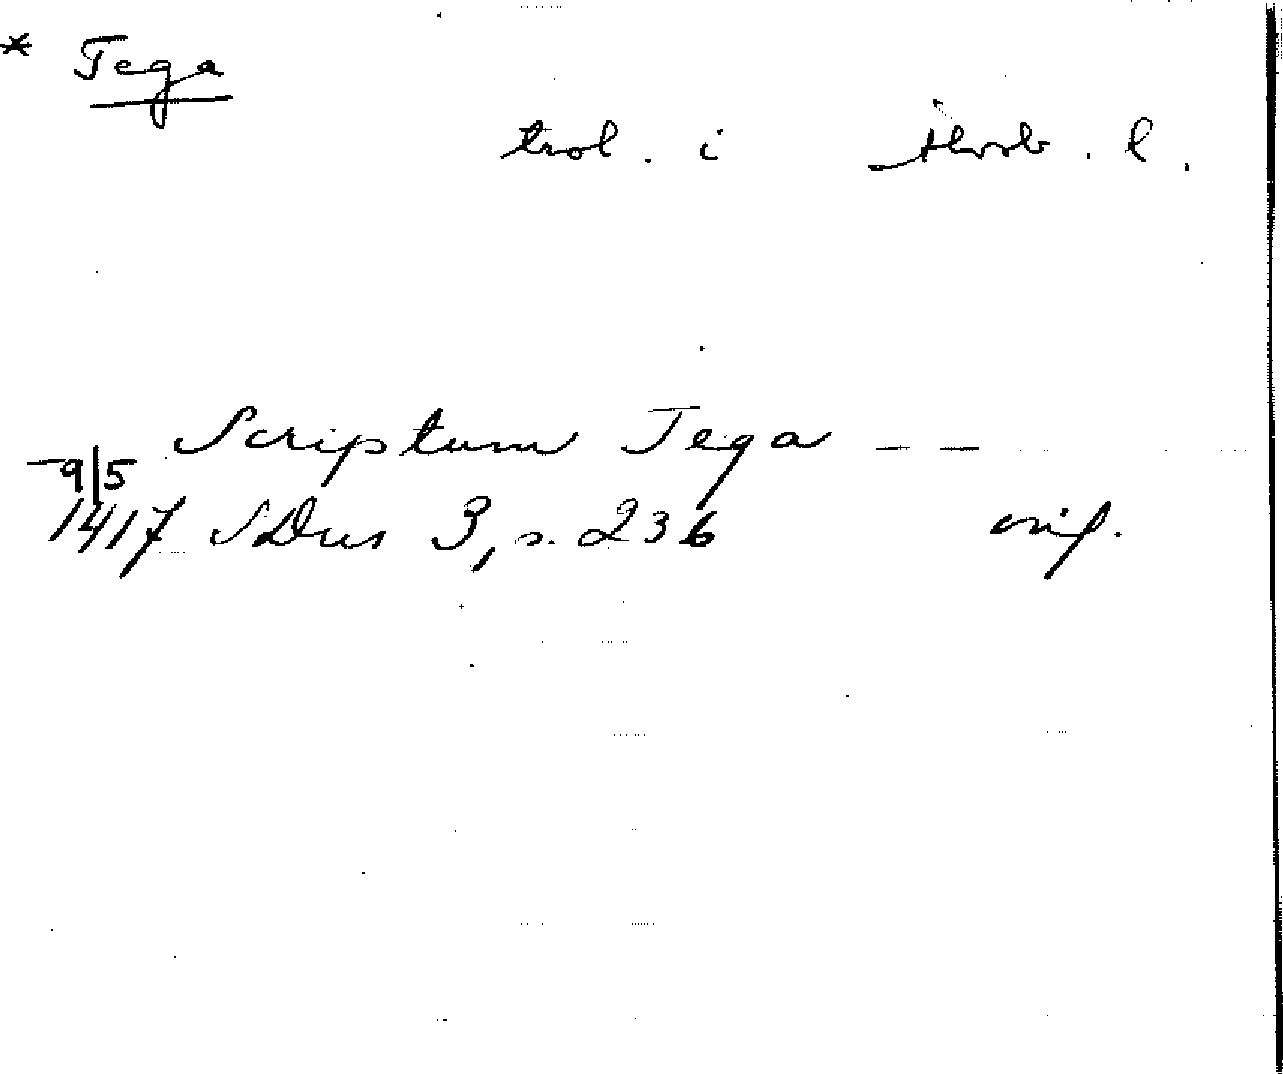 * Tega
trol. i Skarab. l.
Scriptum Tega — —
9/5
1417 SDns 3, s. 236 orig.